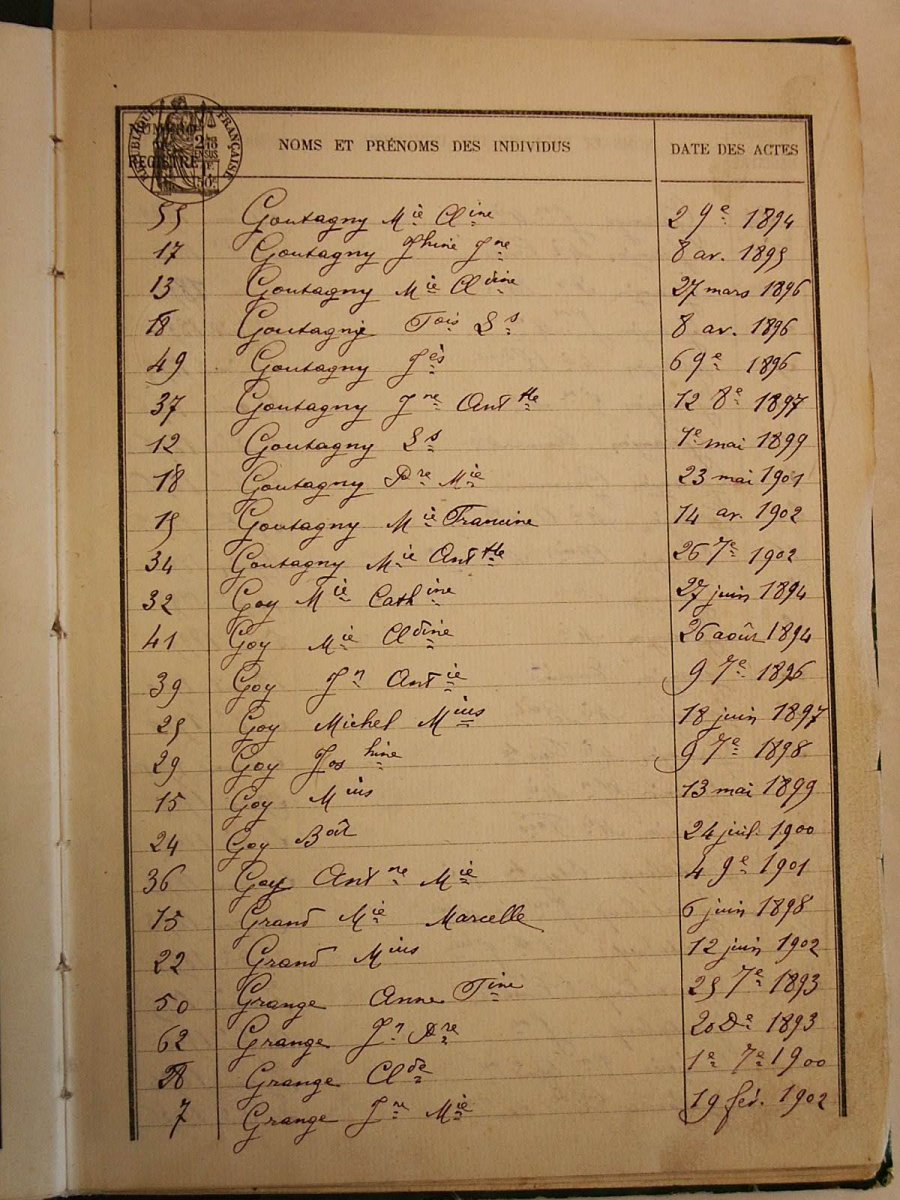 NUMÉRO DU REGISTRE NOMS ET PRÉNOMS DES INDIVIDUS DATE DES ACTES
RÉPUBLIQUE FRANÇAISE
55 Goutagny Mie Cline 2 9e 1894
17 Goutagny Jhine Jne 8 av. 1895
13 Goutagny Mie Cldine 27 mars 1896
18 Goutagny Fois Ls 8 av. 1896
49 Goutagny Jes 6 9e 1896
37 Goutagny Jne Antte 12 8e 1897
12 Goutagny Ls 1e mai 1899
18 Goutagny Pre Mie 23 mai 1901
15 Goutagny Mie Francine 14 av. 1902
34 Goutagny Mie Antte 26 7e 1902
32 Goy Mie Cathine 27 juin 1894
41 Goy Mie Cldine 26 août 1894
39 Goy Jn Antie 9 7e 1896
25 Goy Michel Mius 18 juin 1897
29 Goy Joshine 9 7e 1898
15 Goy Mius 13 mai 1899
24 Goy Bat 24 juil. 1900
36 Goy Antne Mie 4 9e 1901
15 Grand Mie Marcelle 6 juin 1898
22 Grand Mius 12 juin 1902
50 Grange Anne Fine 25 7e 1893
62 Grange Jn Pre 20 De 1893
28 Grange Clde 1e 7e 1900
7 Grange Jne Mie 19 fév. 1902